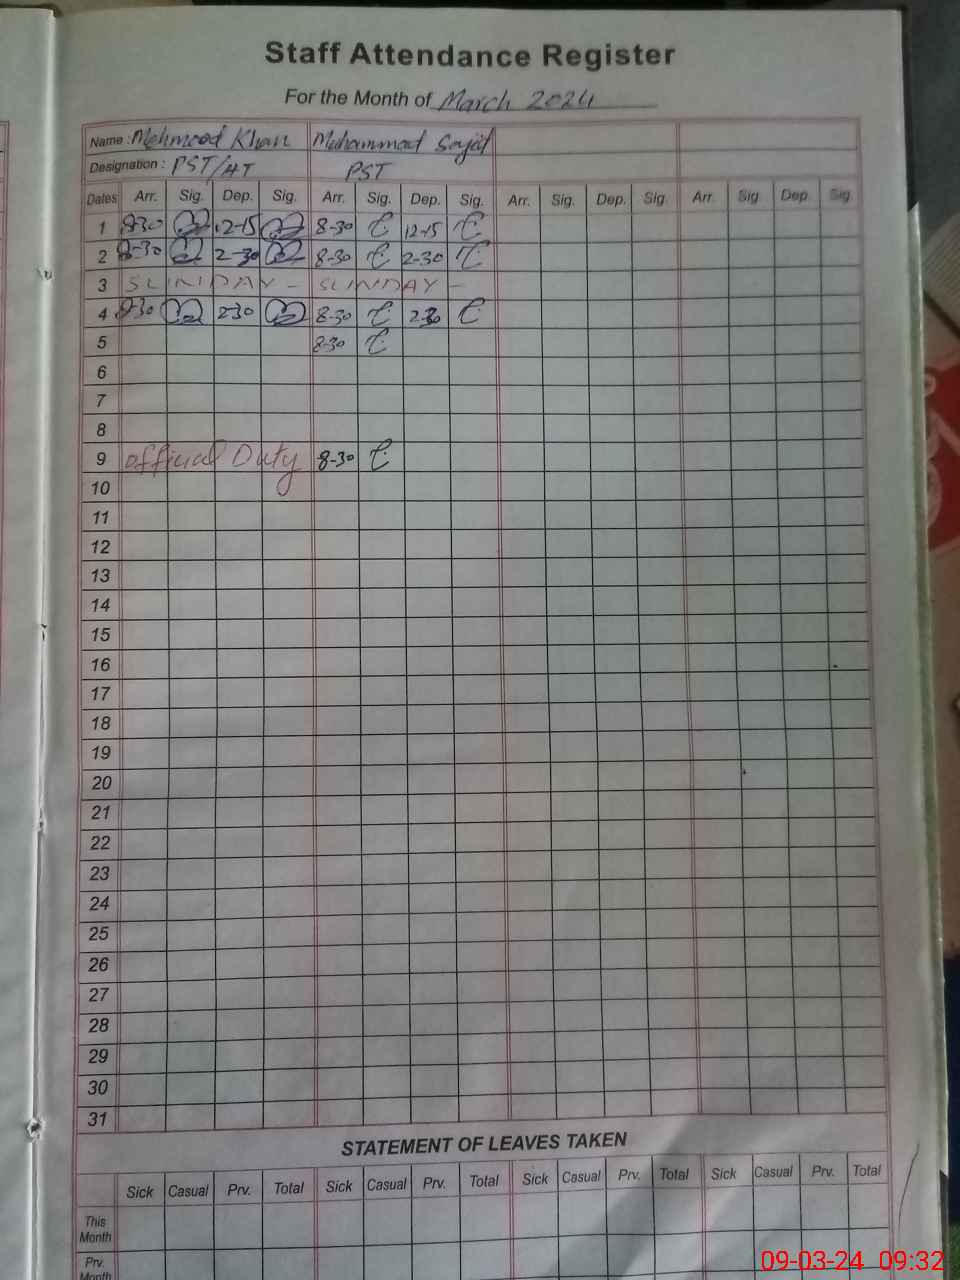 Staff Attendance Register
For the Month of March 2024
Name : Mehmood Khan Muhammad Sajid
Designation : PST/HT PST
Dates Arr. Sig. Dep. Sig. Arr. Sig. Dep. Sig. Arr. Sig. Dep. Sig. Arr. Sig. Dep. Sig.
1 8-30 12-15 8-30 12-15
2 8-30 2-30 8-30 2-30
3 SUNDAY - SUNDAY -
4 8-30 2-30 8-30 2-30
5 8-30
6
7
8
9 official Duty 8-30
10
11
12
13
14
15
16
17
18
19
20
21
22
23
24
25
26
27
28
29
30
31
STATEMENT OF LEAVES TAKEN
Sick Casual Prv. Total Sick Casual Prv. Total Sick Casual Prv. Total Sick Casual Prv. Total
This
Month
Prv.
Month
09-03-24 09:32